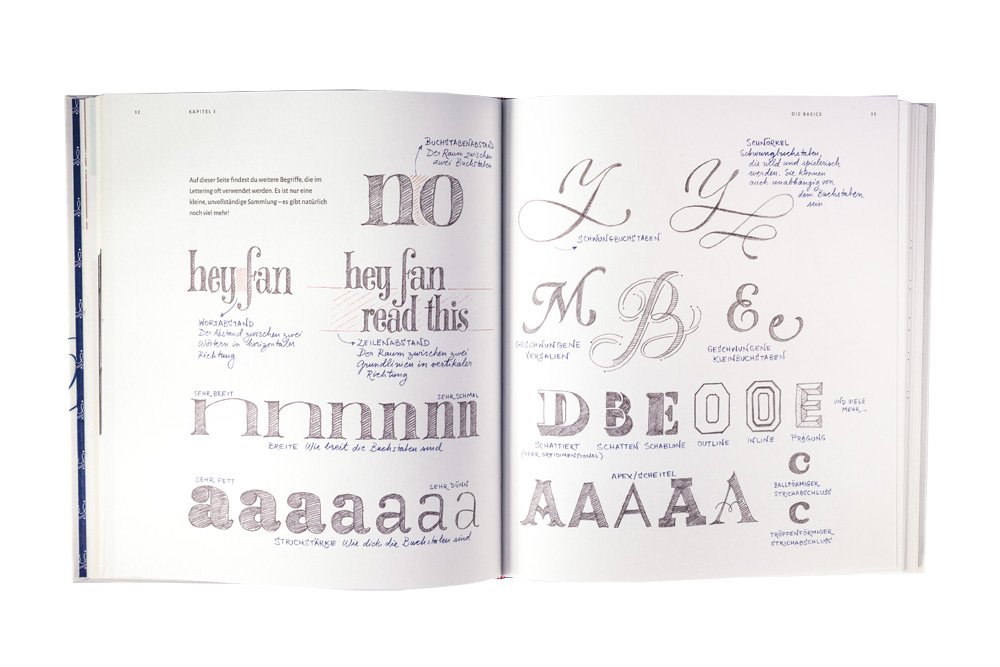 12
KAPITEL 1
Auf dieser Seite findest du weitere Begriffe, die im
Lettering oft verwendet werden. Es ist nur eine
kleine, unvollständige Sammlung – es gibt natürlich
noch viel mehr!
BUCHSTABENABSTAND
Der Raum zwischen
zwei Buchstaben
no
hey fan
WORTABSTAND
Der Abstand zwischen zwei
Wörtern in horizontaler
Richtung
hey fan
read this
ZEILENABSTAND
Der Raum zwischen zwei
Grundlinien in vertikaler
Richtung
SEHR BREIT
SEHR SCHMAL
nnnnnnn
BREITE Wie breit die Buchstaben sind
SEHR FETT
SEHR DÜNN
aaaaaaa
STRICHSTÄRKE Wie dick die Buchstaben sind
DIE BASICS
13
Y
SCHWUNGBUCHSTABEN
Y
SCHNÖRKEL
Schwungbuchstaben,
die wild und spielerisch
werden. Sie können
auch unabhängig von
dem Buchstaben
sein
M
GESCHWUNGENE
VERSALIEN
B
E e
GESCHWUNGENE
KLEINBUCHSTABEN
D B E O O E
UND VIELE
MEHR...
SCHATTIERT
(ODER DREIDIMENSIONAL)
SCHATTEN
SCHABLONE
OUTLINE
INLINE
PRÄGUNG
APEX/SCHEITEL
AAAAA
C
BALLFÖRMIGER
STRICHABSCHLUSS
C
TROPFENFÖRMIGER
STRICHABSCHLUSS